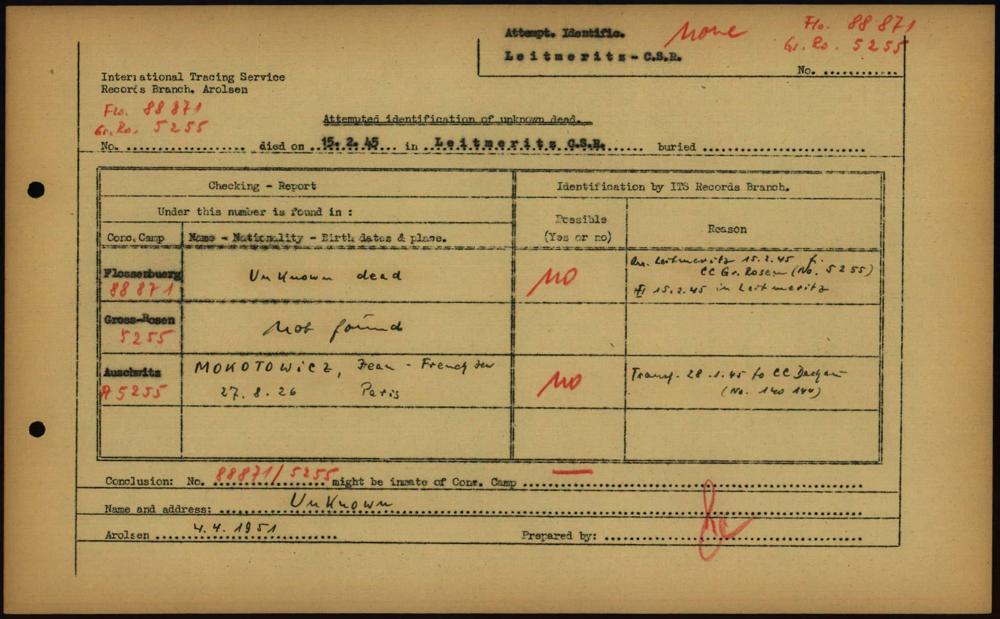 Attempt. Identific. None
Flo. 88 871
Leitmeritz - C.S.R.
Gr. Ro. 5255
No. ............
International Tracing Service
Records Branch. Arolsen
Flo. 88 871
Gr. Ro. 5255
Attempted identification of unknown dead.
No. .................. died on ..15. 2. 45... in ..Leitmeritz C.S.R....... buried .........................
Checking - Report
Identification by ITS Records Branch.
Under this number is found in :
Possible
(Yes or no)
Reason
Conc. Camp
Name - Nationality - Birth dates & place.
Flossenbuerg
88 871
Unknown dead
no
Leitmeritz 15.2.45 fr.
CC Gr. Rosen (No. 5255)
15.2.45 in Leitmeritz
Gross-Rosen
5255
Not found
Auschwitz
A 5255
MOKOTOWICZ, Jean - French Jew
27. 8. 26 Paris
no
Transf. 28.1.45 to CC Dachau
(No. 140 144)
Conclusion: No. 88871/5255 might be inmate of Conc. Camp —
Name and address: Unknown
Arolsen 4.4.1951
Prepared by: